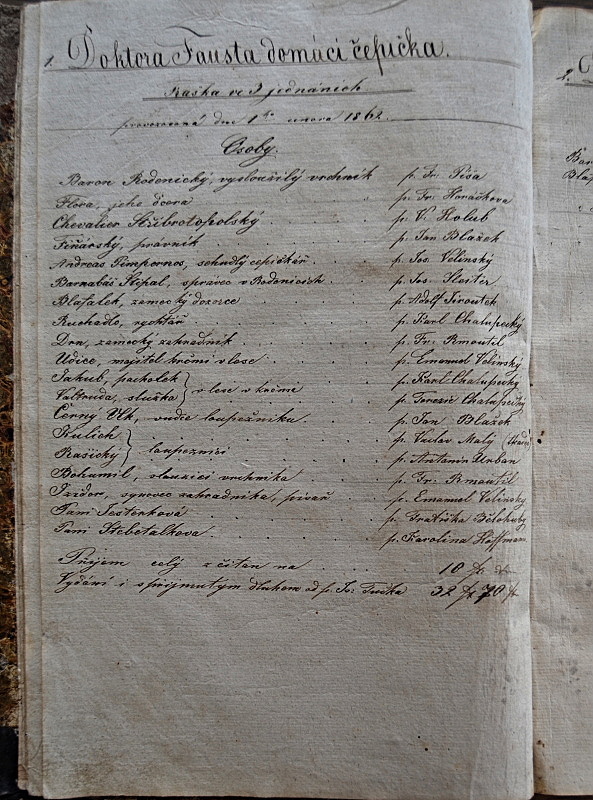 1. Doktora Fausta domácí čepička.
Fraška ve 3 jednáních
provozovaná dne 1ho února 1862.
Osoby.
Baron Rodenický, vysloužilý vrchník p. Fr. Píša
Flora, jeho dcera p. Fr. Horáčkova
Chevalier Stříbrotopolský p. V. Holub
Fiňárský, právník p. Jan Blažek
Andreas Pimpernos, sehnalý čepičkář. p. Jos. Velinský
Barnabáš Štěpal, správec v Rodenicích. p. Jos.
Blafálek, zámecký dozorce p. Adolf Jiroutek
Ruchadlo, rychtář p. Karl Chalupecký
Drn, zámecký zahradník. p. Fr. Rmoutil
Udice, majitel krčmi v lese p. Emanuel Velinský
Jakub, pacholek } v lese v krčmě p. Karl Chalupecký
Valtruda, služka p. Terezie Chalupecký
Černý Vlk, vůdce loupežníku. p. Jan Blažek
Kulich } loupezníci p. Václav Malý
Rašický p. Antonín Urban
Bohumil, sloužící vrchníka p. Fr. Rmoutil
Izidor, synovec zahradníka, písař p. Emanuel Velinský
Paní Šesterková p. Františka Bělohuby
Paní Štebetalkova. p. Karolina Hoffmann
Příjem celý zčítan na 10 fr.
Vydání i s přijmutým dluhem od p. Jos. Tučka 32 fr 70 kr